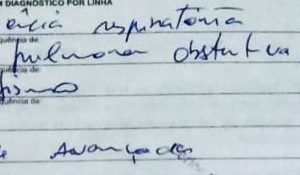 M DIAGNÓSTICO POR LINHA
ência respiratória
quência de:
pulmonar obstrutiva
quência de:
quência de:
Avançada